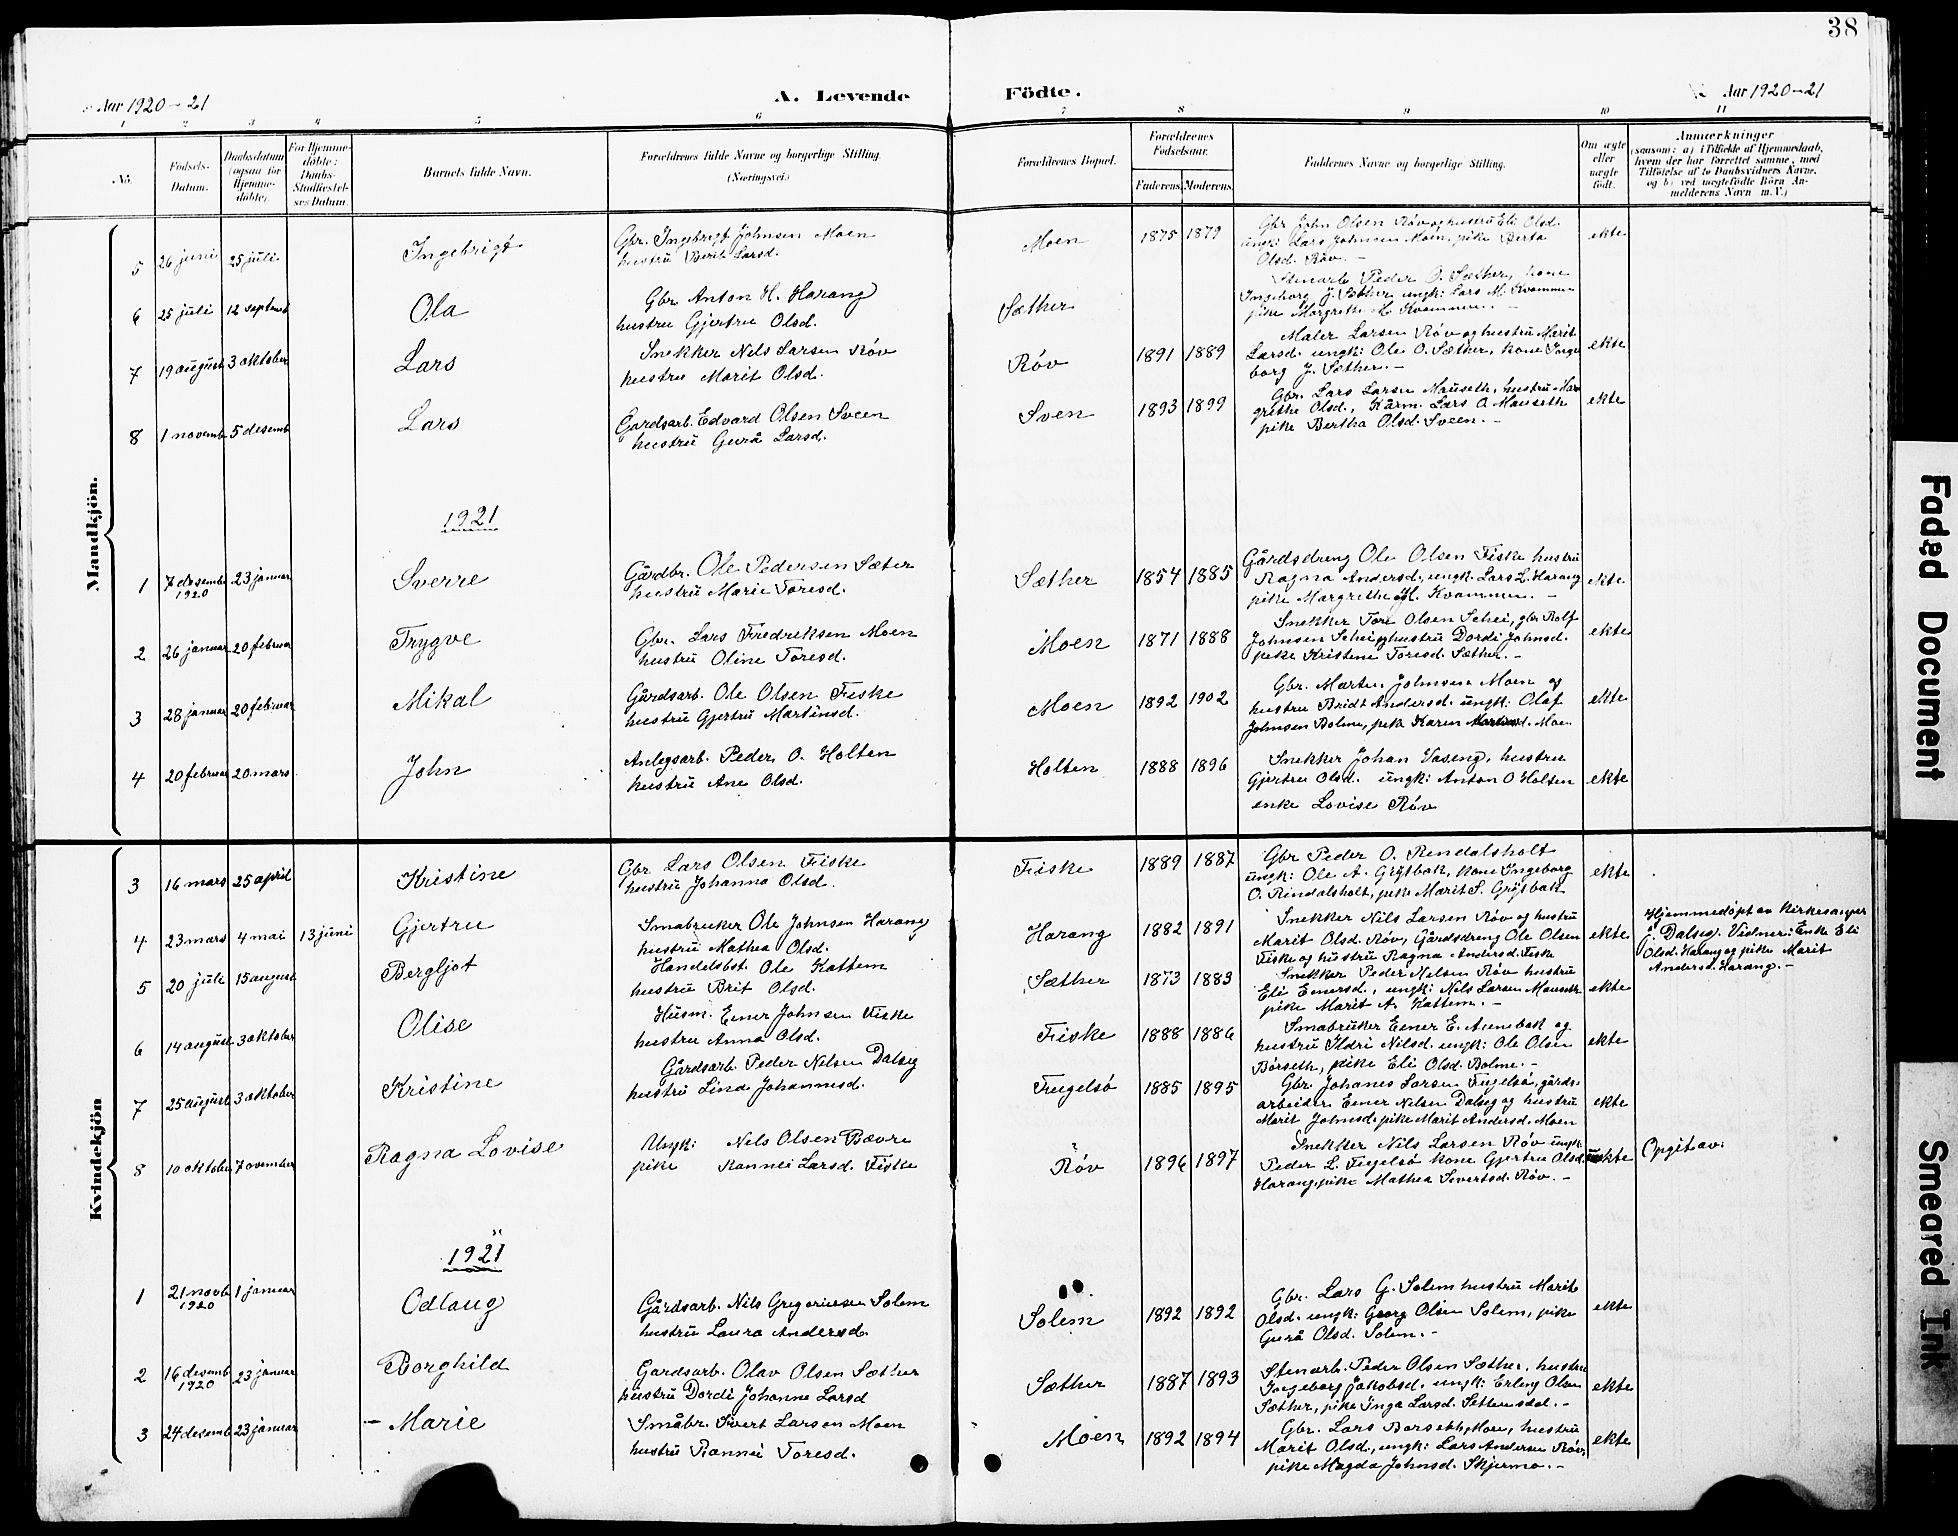 38
Aar 1920-21
A. Levende
Födte.
Aar 1920-21
1 2 3 4 5 6 7 8 9 10 11
No.
Födsels-
Datum.
Daabsdatum
(ogsaa for
Hjemme-
döbte).
For Hjemme-
döbte:
Daabs-
Stadfæstel-
ses Datum.
Barnets fulde Navn.
Forældrenes fulde Navne og borgerlige Stilling
(Næringsvei)
Forældrenes Bopæl.
Forældrenes
Födselsaar.
Faderens Moderens
Faddernes Navne og borgerlige Stilling.
Om ægte
eller
uægte
födt.
Anmærkninger
(saasom: a) i Tilfælde af Hjemmedaab,
hvem der har forrettet samme, med
Tilföielse af to Daabsvidners Navne,
og b) ved uægtefödte Börn An-
melderens Navn m.V.)
Mandkjön.
5 26 juni 25 juli Ingebrigt
Gbr. Ingebrigt Johnsen Moen
hustru Berit Larsd.
Moen 1875 1879
Gbr John Olsen Röv og hustru Eli Olsd.
ungk: Lars Johnsen Moen, pike Berta
Olsd. Röv. -
ekte
6 25 juli 12 septemb Ola
Gbr Anton H. Harang
hustru Gjertru Olsd.
Sæther
Stenarb Peder O. Sæther, kone
Ingeborg J. Sæther ungk: Lars M. Kvammen
pike Margrethe M. Kvammen. -
7 19 august 3 oktober Lars
Snekker Nils Larsen Röv
hustru Marit Olsd.
Röv 1891 1889
Maler Larsen Röv og hustru Marit
Larsd. ungk: Ole O. Sæther, kone Inge
borg J. Sæther. -
ekte
8 1 novemb 5 desemb Lars
Gardsarb. Edvard Olsen Sveen
hustru Gurå Larsd.
Sven 1893 1899
Gbr. Lars Larsen Mauseth, hustru Mar
grethe Olsd., Kårm. Lars O. Mauseth
pike Bertha Olsd. Sveen. -
ekte
1921
1 7 desemb 1920 23 januar Sverre
Gårdbr. Ole Pedersen Sæter
hustru Marie Toresd.
Sæther 1854 1885
Gårdsdreng Ole Olsen Fiske hustru
Ragna Andersd., ungk. Lars L. Harang
pike Margrethe M. Kvammen. -
ekte
2 26 januar 20 februar Trygve
Gbr. Lars Fredriksen Moen
hustru Oline Toresd.
Moen 1871 1888
Snekker Tore Olsen Schei, gbr Rolf
Johnsen Schei og hustru Dordi Johnsd.
pike Kristine Toresd. Sæther. -
ekte
3 28 januar 20 februar Mikal
Gårdsarb. Ole Olsen Fiske
hustru Gjertru Martinsd.
Moen 1892 1902
Gbr. Martin Johnsen Moen og
hustru Bridt Andersd. ungk: Olaf
Johnsen Bolme, pik Karen Martinsd. Moen
ekte
4 20 februar 20 mars John
Anlegsarb. Peder O. Holten
hustru Ane Olsd.
Holten 1888 1896
Snekker Johan Vaseng, hustru
Gjertru Olsd. ungk: Anton O Holten
enke Lovise Röv
ekte
Kvindekjön
3 16 mars 25 april Kristine
Gbr Lars Olsen Fiske
hustru Johanna Olsd.
Fiske 1889 1887
Gbr Peder O. Rendalsholt
ungk: Ole A. Grytbak, kone Ingeborg
O. Rindalsholt, pike Marit S. Grytbak
ekte
4 23 mars 4 mai 13 juni Gjertru
Smabruker Ole Johnsen Harang
hustru Mathea Olsd.
Harang 1882 1891
Snekker Nils Larsen Röv og hustru
Marit Olsd. Röv, Gårdsdreng Ole Olsen
Fiske og hustru Ragna Andersd. Fiske
ekte
Hjemmedöpt av Kirkesanger
Dalseg. Vidner: Enke Eli
Olsd. Harang og pike Marit
Andersd. Harang. -
5 20 juli 15 august Bergljot
Handelsbst. Ole Kattem
hustru Brit Olsd.
Sæther 1873 1883
Snekker Peder Nelsen Röv hustru
Eli Einersd., ungk: Nils Larsen Mauseth
pike Marit A. Kattem. -
ekte
6 14 august 3 oktober Olise
Husm. Einer Johnsen Fiske
hustru Anna Olsd.
Fiske 1888 1886
Smabruker Einer E. Aunebak og
hustru Ildri Nilsd. ungk: Ole Olsen
Börseth, pike Eli Olsd. Bolme. -
ekte
7 25 august 3 oktober Kristine
Gårdsarb. Peder Nelsen Dalseg
hustru Lina Johannesd.
Fugelsö 1885 1895
Gbr. Johanes Larsen Fugelsö, gårds-
arbeider Einer Nilsen Dalseg og hustru
Marit Johnsd. pike Marit Andersd. Moen
ekte
8 10 oktober 7 november Ragna Lovise
Ungk: Nils Olsen Bævre
pike Rannei Larsd. Fiske
Röv 1896 1897
Snekker Nils Larsen Röv ungk.
Peder L. Fugelsö kone Gjertru Olsd.
Harang, pike Mathea Sivertsd. Röv. -
uekte
Opgit av:
1921
1 21 novb 1920 1 januar Odlaug
Gårdsarb. Nils Gregoriusen Solem
hustru Laura Andersd.
Solem 1892 1892
Gbr. Lars G. Solem hustru Marit
Olsd. ungk: Georg Olsen Solem, pike
Gurå Olsd. Solem. -
ekte
2 16 desemb 1920 23 januar Borghild
Gardsarb. Olav Olsen Sæther
hustru Dordi Johanne Larsd
Sæther 1887 1893
Stenarb. Peder Olsen Sæther, hustru
Ingeborg Jakobsd., ungk: Erling Olsen
Sæther, pike Inga Larsd. Settemsdal. -
ekte
3 24 desemb 23 januar - Marie
Småbr. Sivert Larsen Moen
hustru Rannei Toresd.
Moen 1892 1894
Gbr. Lars Borseth, Moen, hustru
Marit Olsd., ungk: Lars Andersen Röv,
pike Magda Johnsd. Skjermo. -
ekte
Faded Document
Smeared Ink